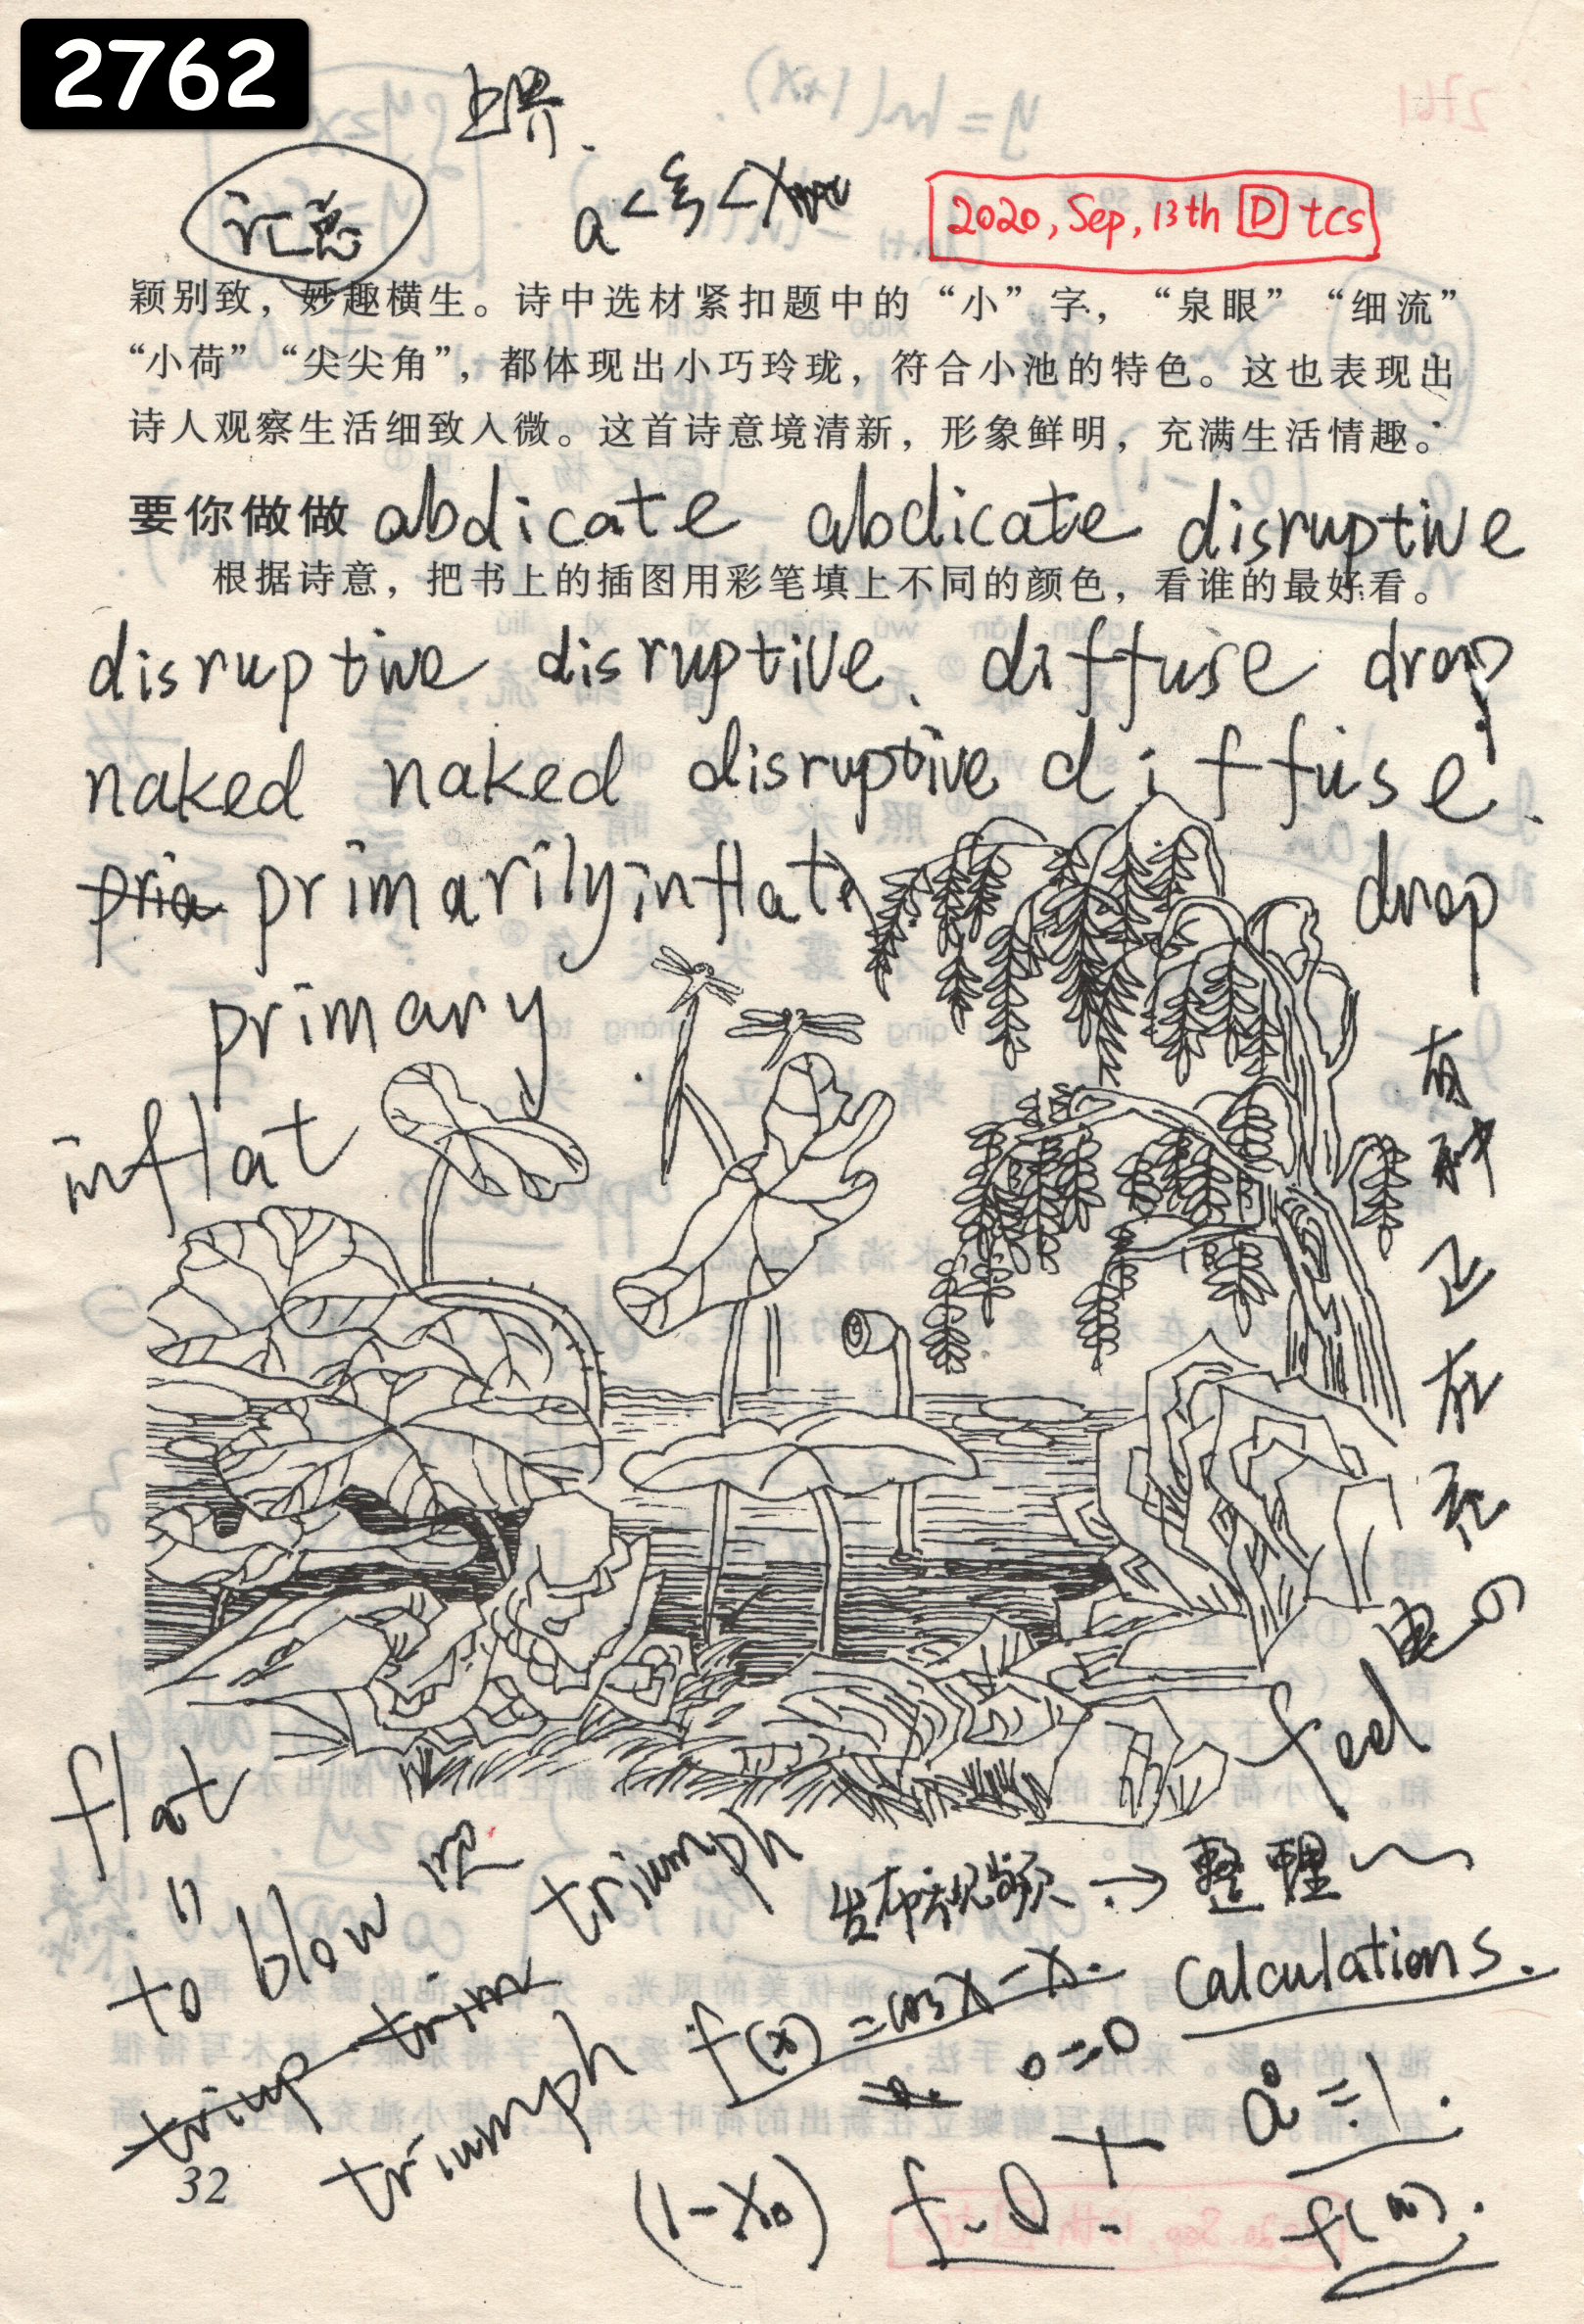 2762
上界.
汇总
a<ξ<x
2020, Sep, 13th D tcs
颖别致，妙趣横生。诗中选材紧扣题中的“小”字，“泉眼”“细流”
“小荷”“尖尖角”，都体现出小巧玲珑，符合小池的特色。这也表现出
诗人观察生活细致入微。这首诗意境清新，形象鲜明，充满生活情趣。
要你做做 abdicate abdicate disruptive
根据诗意，把书上的插图用彩笔填上不同的颜色，看谁的最好看。
disruptive disruptive. diffuse drop
naked naked disruptive diffuse.
pria primarily inflate drop
primary
inflat
有种正在充电の
feel
flat
=
to blow
triumph
发布视频 → 整理
Calculations.
f(x)=cosx-x.
0=0
a⁰=1.
triup trim
triumph
(1-x₀)
32